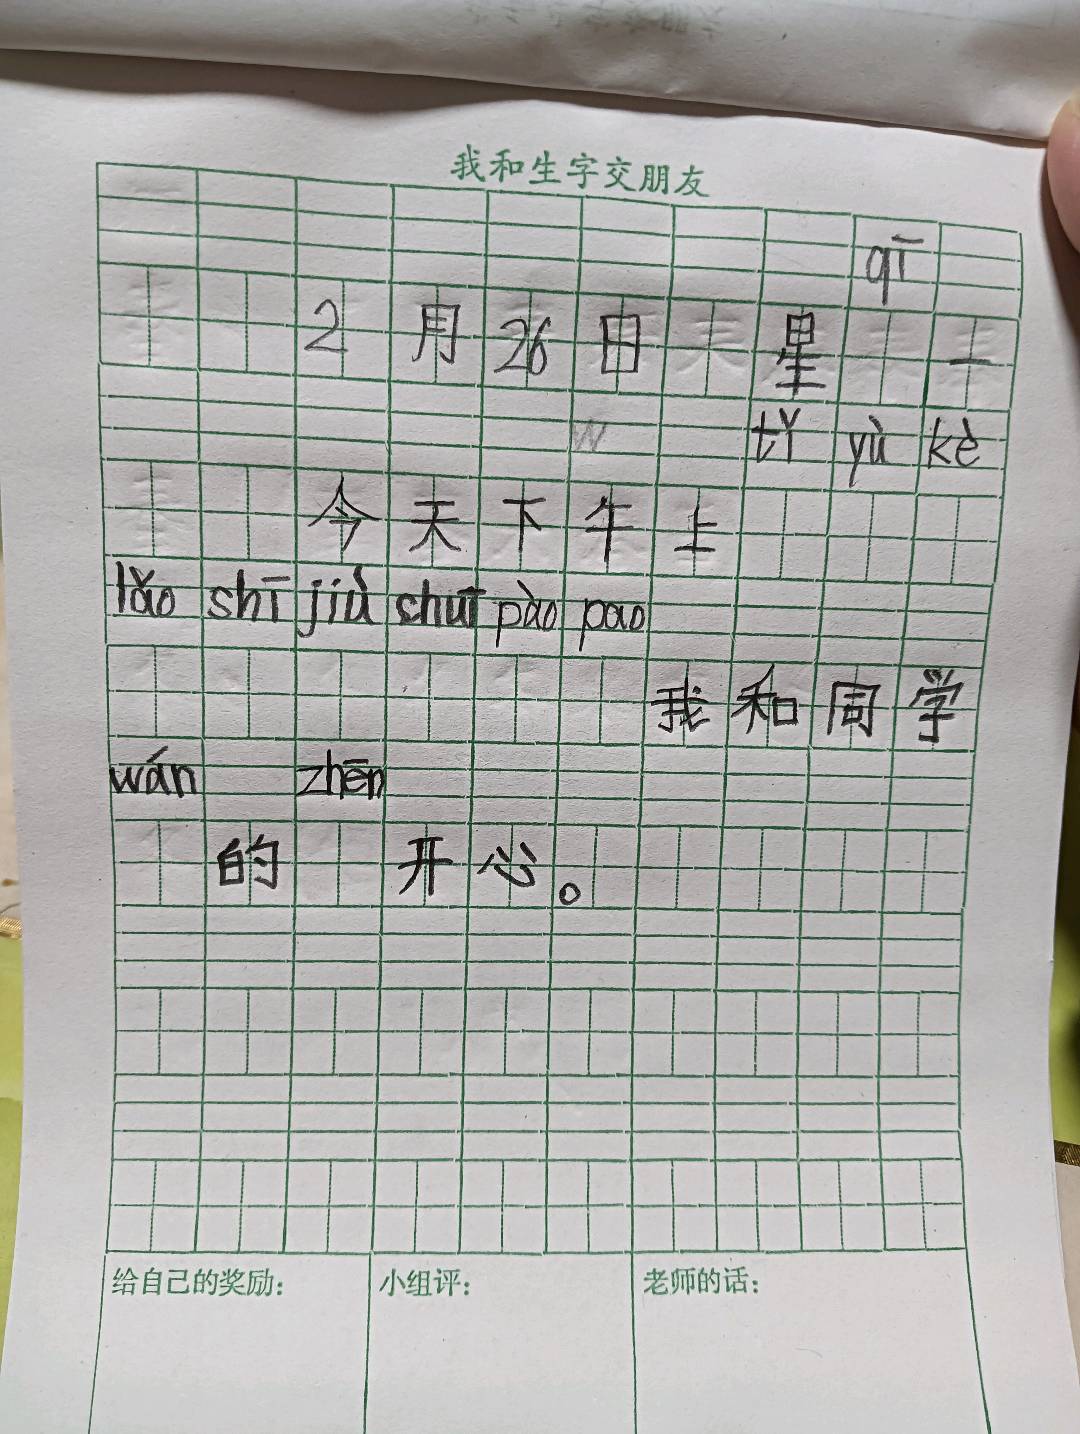 我和生字交朋友
qī
2月26日 星 一
tǐ yù kè
今天下午上
lǎo shī jiù chuī pào pao
我和同学
wán zhēn
的 开心。
给自己的奖励: 小组评: 老师的话: